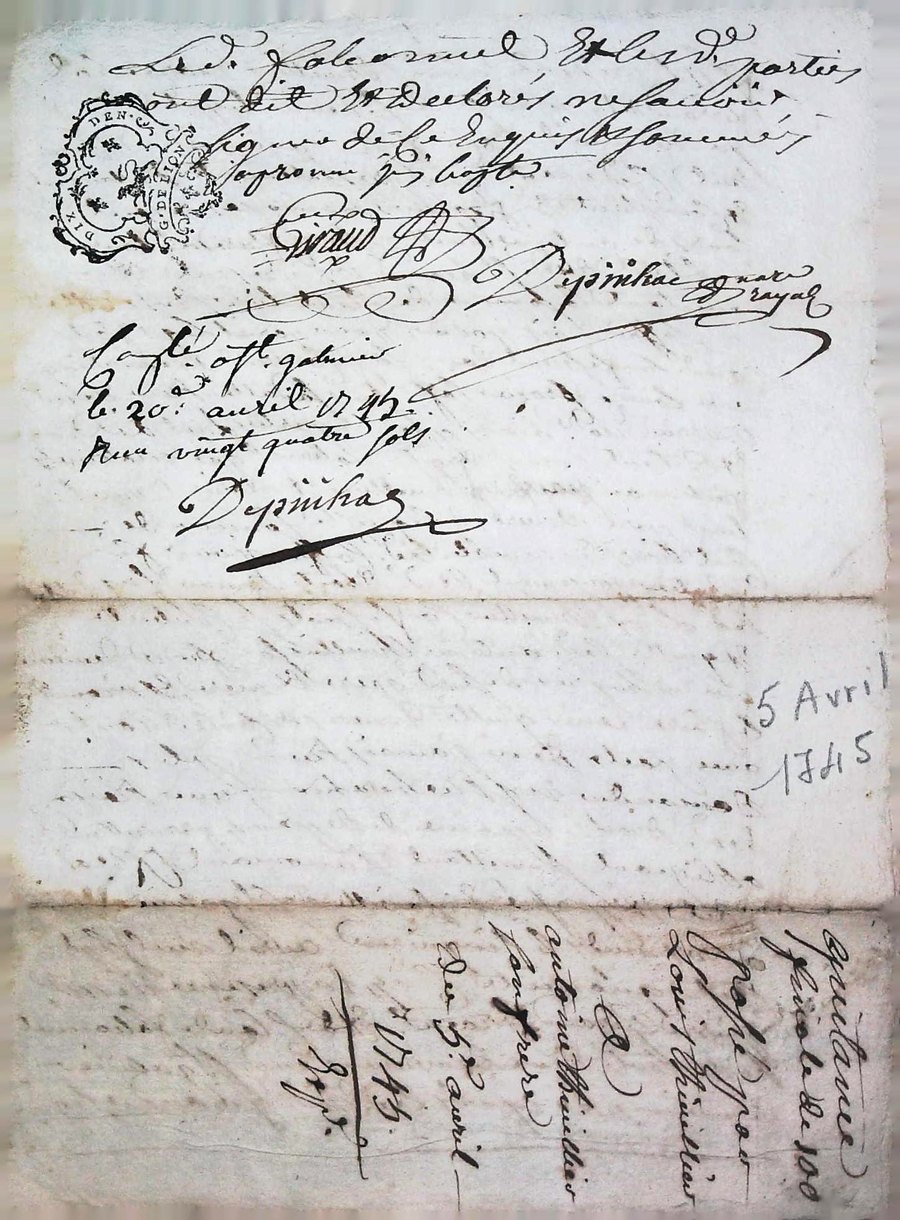 Led. falconnel Et lesd. parties
ont dit Et Declarés ne scavoir
signer de Ce Enquis Et sommés
DIX DEN.
G. DE LION
Giraud
Depinhac nore
royal
Conllé a St galmier
le 20e. avril 1745.
Receu vingt quatre sols
Depinhac
5 Avril
1745
quitance
finale de 100
passé par
Louis thinillier
A
antoine thinillier
son frere
Du 5e. avril
1745.
Expd.